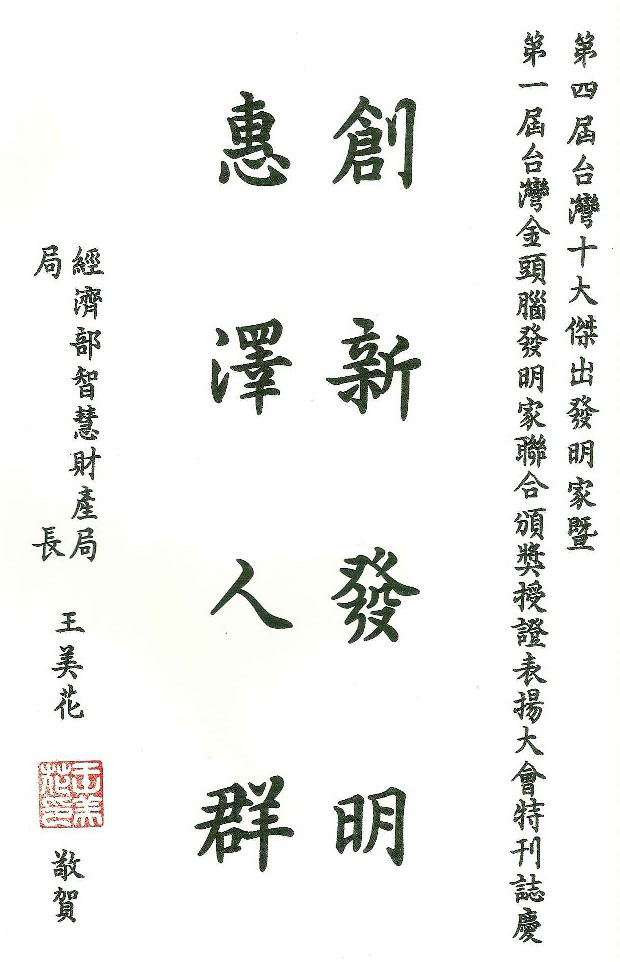 第四屆台灣十大傑出發明家暨
第一屆台灣金頭腦發明家聯合頒獎授證表揚大會特刊誌慶
創新發明
惠澤人群
經濟部智慧財產局
局長
王美花
王美花印
敬賀